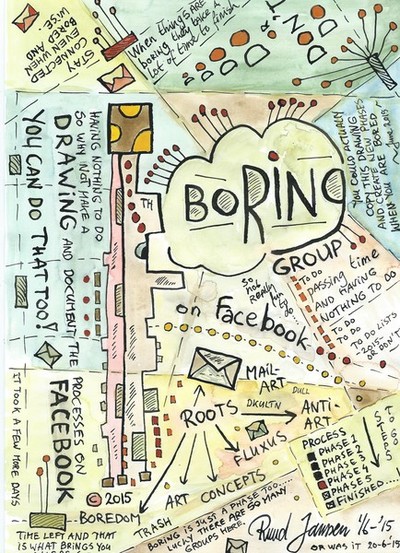 STAY
CONNECTED
EVEN WHEN
BORED AND
WISE.
When things are
boring they take a
lot of time to finish
DO OR DON'T
YOU COULD ACTUALLY
COPY THIS DRAWING
AND CREATE NEW PHASES
WHEN YOU ARE BORED.
~ June 2015
HAVING NOTHING TO DO
SO WHY NOT MAKE A
DRAWING AND DOCUMENT THE
PROCESSES ON
FACEBOOK
YOU CAN DO THAT TOO!
TH
BORING
GROUP
on Facebook
SO
NOT
REALLY
FUN
TO
DO...
TO DO
passing time
AND HAVING
NOTHING TO DO
TO DO
TO DO
TO DO LISTS
2015
OR DON'T
MAIL-
ART
ROOTS
DKULTN
DULL
ANTI-
ART
FLUXUS
ART CONCEPTS
TRASH
PROCESS
PHASE 1
PHASE 2
PHASE 3
PHASE 4
PHASE 5
FINISHED....
STOP
STEPS
IT TOOK A FEW MORE DAYS
© 2015
BOREDOM
TIME LEFT AND THAT
IS WHAT BRINGS YOU
BORING IS JUST A PHASE TOO....
LUCKY THERE ARE SO MANY
GROUPS HERE.
Ruud Janssen
'15
OR WAS IT 20-6-'15